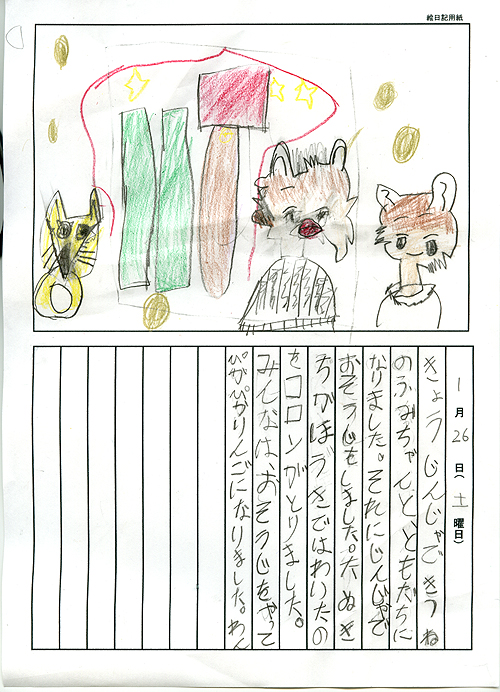 絵日記用紙
1月26日(土曜日)
きょうじんじゃできつね
のふみちゃんと、ともだちに
なりました。それにじんじゃで
おそうじをしました。たぬき
ちがほうきではわいたの
をコロンがとりました。
みんなは、おそうじをやって
ぴかぴかりんごになりました。わん